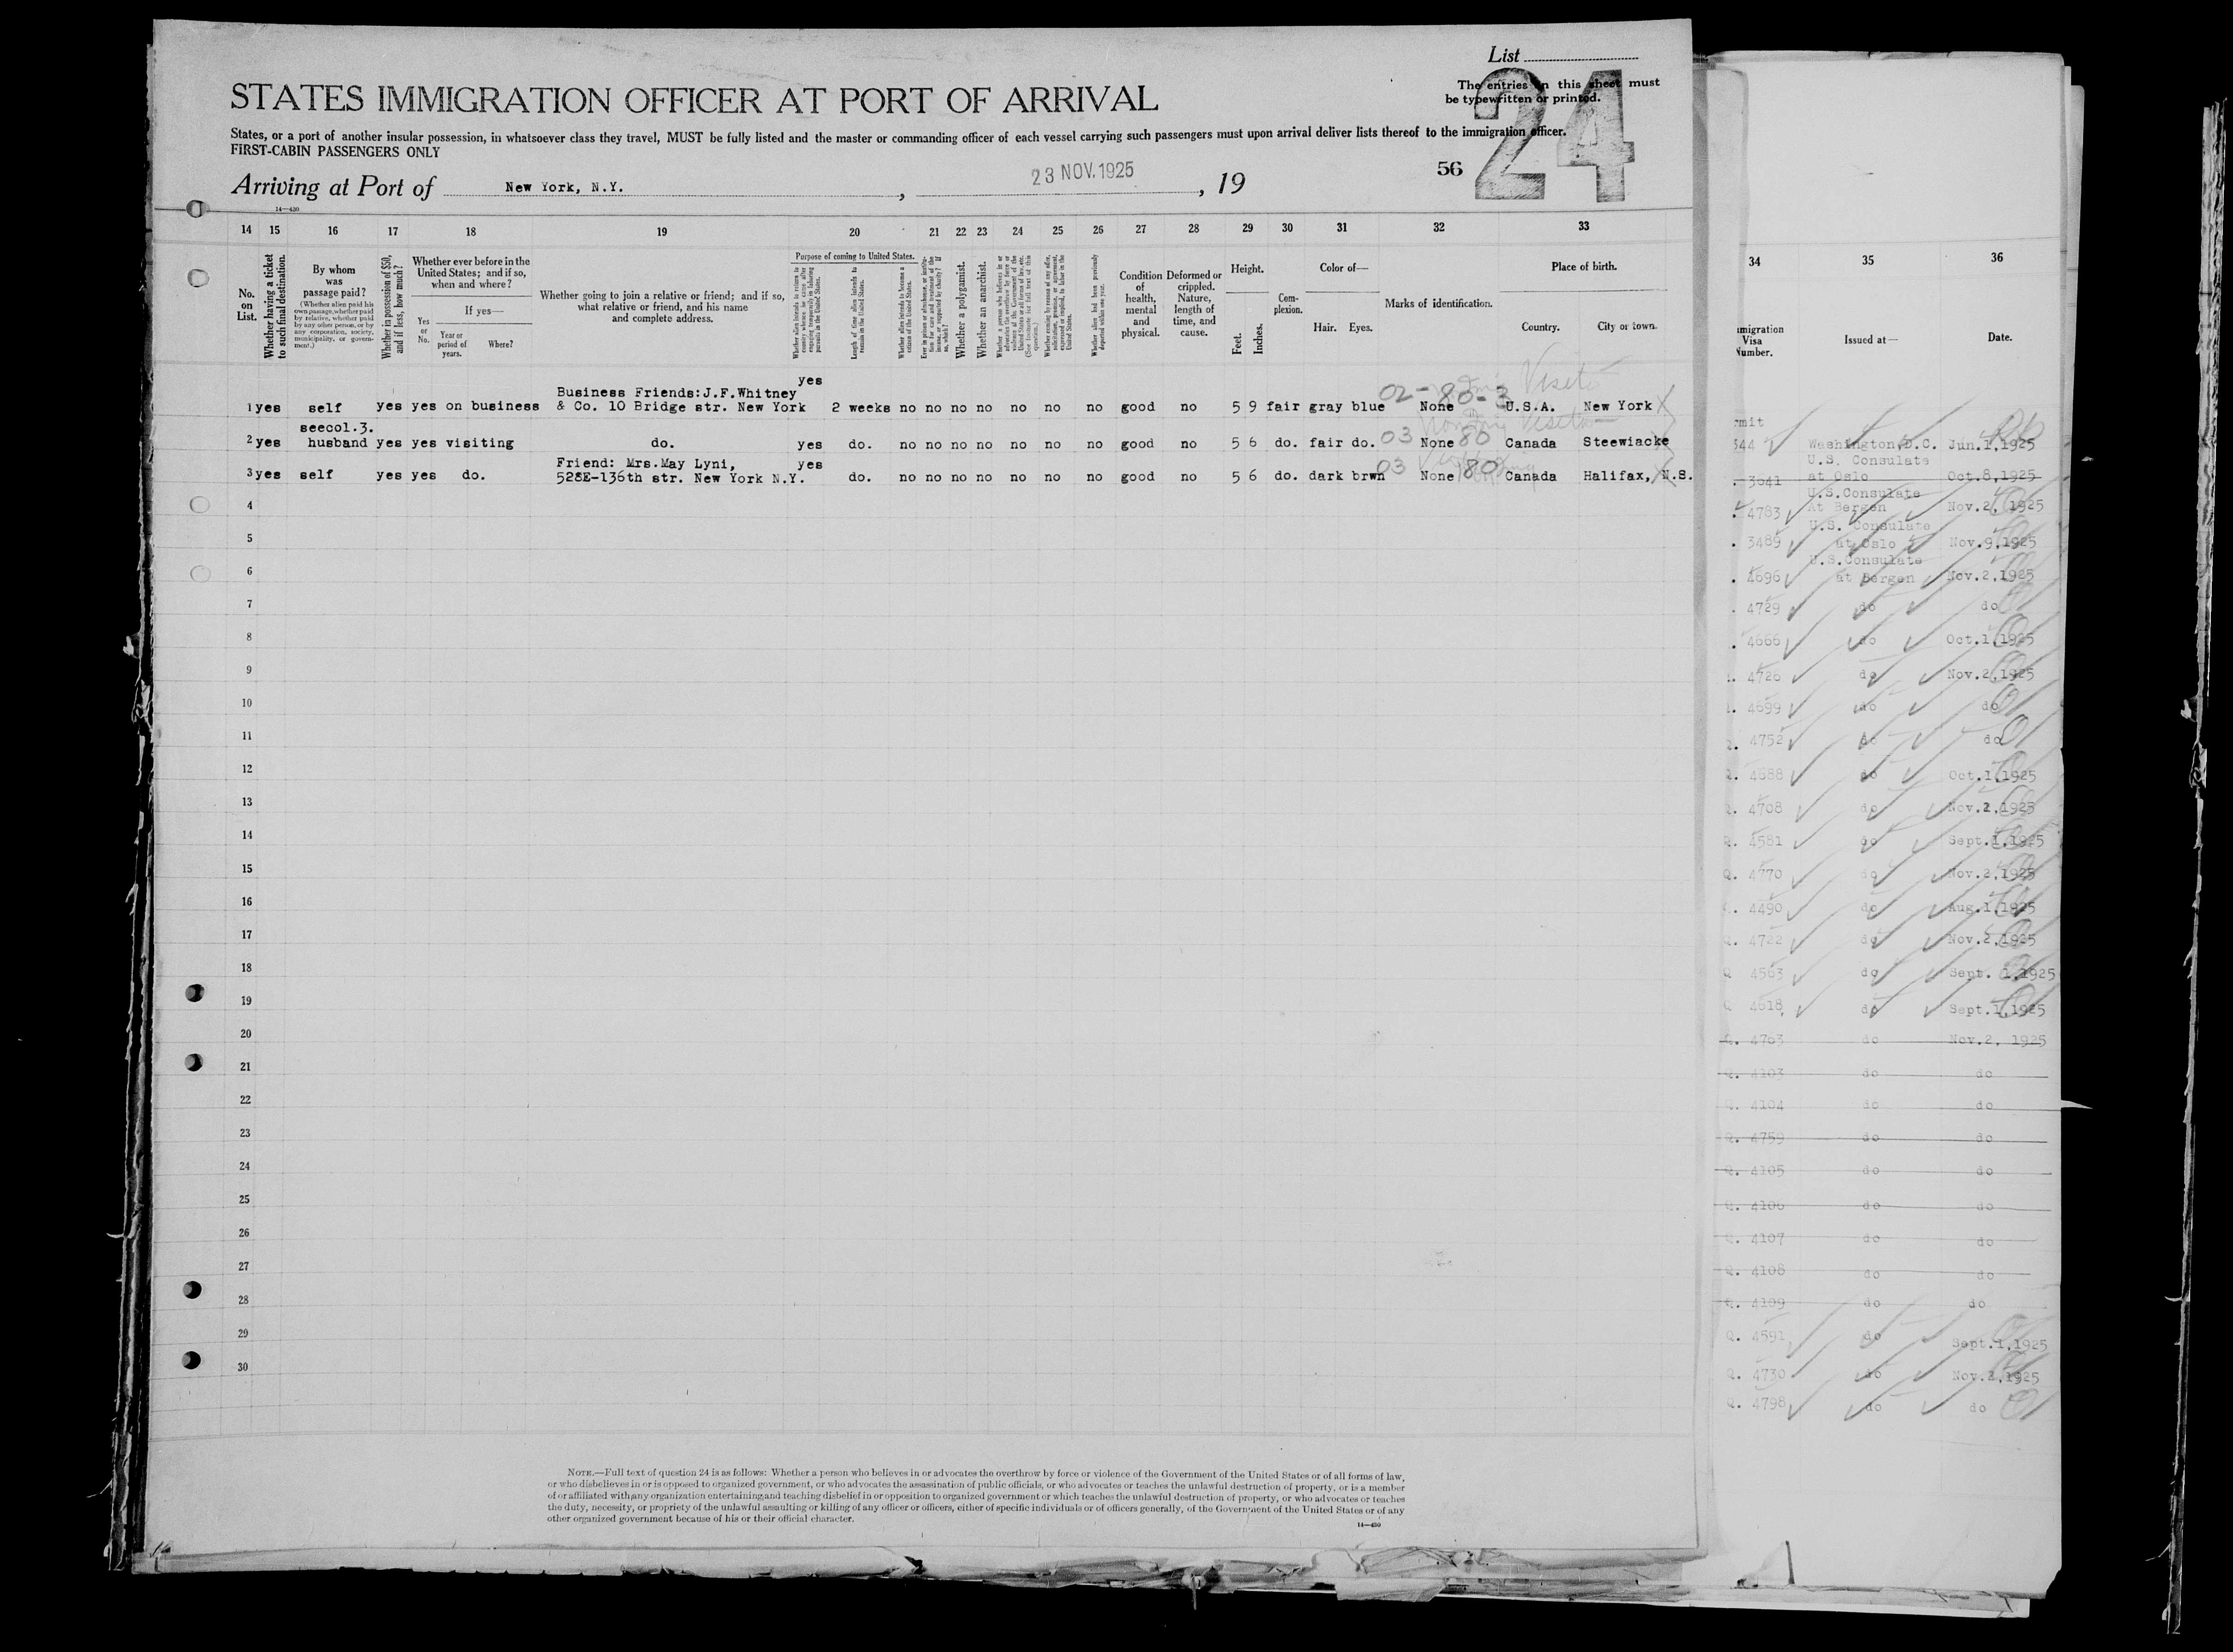 List
The entries on this sheet must
be typewritten or printed.
24
STATES IMMIGRATION OFFICER AT PORT OF ARRIVAL
States, or a port of another insular possession, in whatsoever class they travel, MUST be fully listed and the master or commanding officer of each vessel carrying such passengers must upon arrival deliver lists thereof to the immigration officer.
FIRST-CABIN PASSENGERS ONLY
Arriving at Port of New York, N.Y. , 23 NOV. 1925 , 19
56
14—430
14 15 16 17 18 19 20 21 22 23 24 25 26 27 28 29 30 31 32 33
No. on List.
Whether having a ticket to such final destination.
By whom was passage paid?
(Whether alien paid his own passage, whether paid by relative, whether paid by any other person, or by any corporation, society, municipality, or government.)
Whether in possession of $50, and if less, how much?
Whether ever before in the United States; and if so, when and where?
If yes—
Yes or No.
Year or period of years.
Where?
Whether going to join a relative or friend; and if so, what relative or friend, and his name and complete address.
Purpose of coming to United States.
Length of time alien intends to remain in the United States.
Whether alien intends to become a citizen of the United States.
Whether a polygamist.
Whether an anarchist.
Condition of health, mental and physical.
Deformed or crippled. Nature, length of time, and cause.
Height.
Feet.
Inches.
Complexion.
Color of—
Hair. Eyes.
Marks of identification.
Place of birth.
Country. City or town.
Business Friends:J.F.Whitney yes
1 yes self yes yes on business & Co. 10 Bridge str. New York 2 weeks no no no no no no no good no 5 9 fair gray blue 02- None 80-3 U.S.A. New York
seecol.3.
2 yes husband yes yes visiting do. yes do. no no no no no no no good no 5 6 do. fair do. 03 None 80 Canada Steewiacke
Friend: Mrs.May Lyni, yes
3 yes self yes yes do. 528E-136th str. New York N.Y. do. no no no no no no no good no 5 6 do. dark brwn 03 None 80 Canada Halifax, N.S.
4
5
6
7
8
9
10
11
12
13
14
15
16
17
18
19
20
21
22
23
24
25
26
27
28
29
30
NOTE.—Full text of question 24 is as follows: Whether a person who believes in or advocates the overthrow by force or violence of the Government of the United States or of all forms of law,
or who disbelieves in or is opposed to organized government, or who advocates the assassination of public officials, or who advocates or teaches the unlawful destruction of property, or is a member
of or affiliated with any organization entertaining and teaching disbelief in or opposition to organized government or which teaches the unlawful destruction of property, or who advocates or teaches
the duty, necessity, or propriety of the unlawful assaulting or killing of any officer or officers, either of specific individuals or of officers generally, of the Government of the United States or of any
other organized government because of his or their official character.
14—430
34 35 36
Visa Number.
Issued at—
Date.
Washington,D.C. Jun.1,1925
U.S. Consulate
3641 at Oslo Oct.8,1925
U.S.Consulate
4783 At Bergen Nov.2, 1925
U.S. Consulate
3489 at Oslo Nov.9,1925
U.S.Consulate
4696 at Bergen Nov.2,1925
4729 do do
4666 do Oct.1,1925
4726 do Nov.2,1925
4699 do do
4752 do do
4688 do Oct.1,1925
4708 do Nov.2,1925
4581 do Sept.1,1925
Q. 4770 do Nov.2,1925
4490 do Aug.1,1925
Q. 4722 do Nov.2,1925
Q 4563 do Sept. 1,1925
Q 4618 do Sept.1,1925
Q. 4763 do Nov.2, 1925
Q. 4103 do do
Q. 4104 do do
Q. 4759 do do
Q. 4105 do do
Q. 4106 do do
Q. 4107 do do
Q. 4108 do do
Q. 4109 do do
Q. 4591 do Sept.1,1925
Q. 4730 do Nov.2,1925
Q. 4798 do do